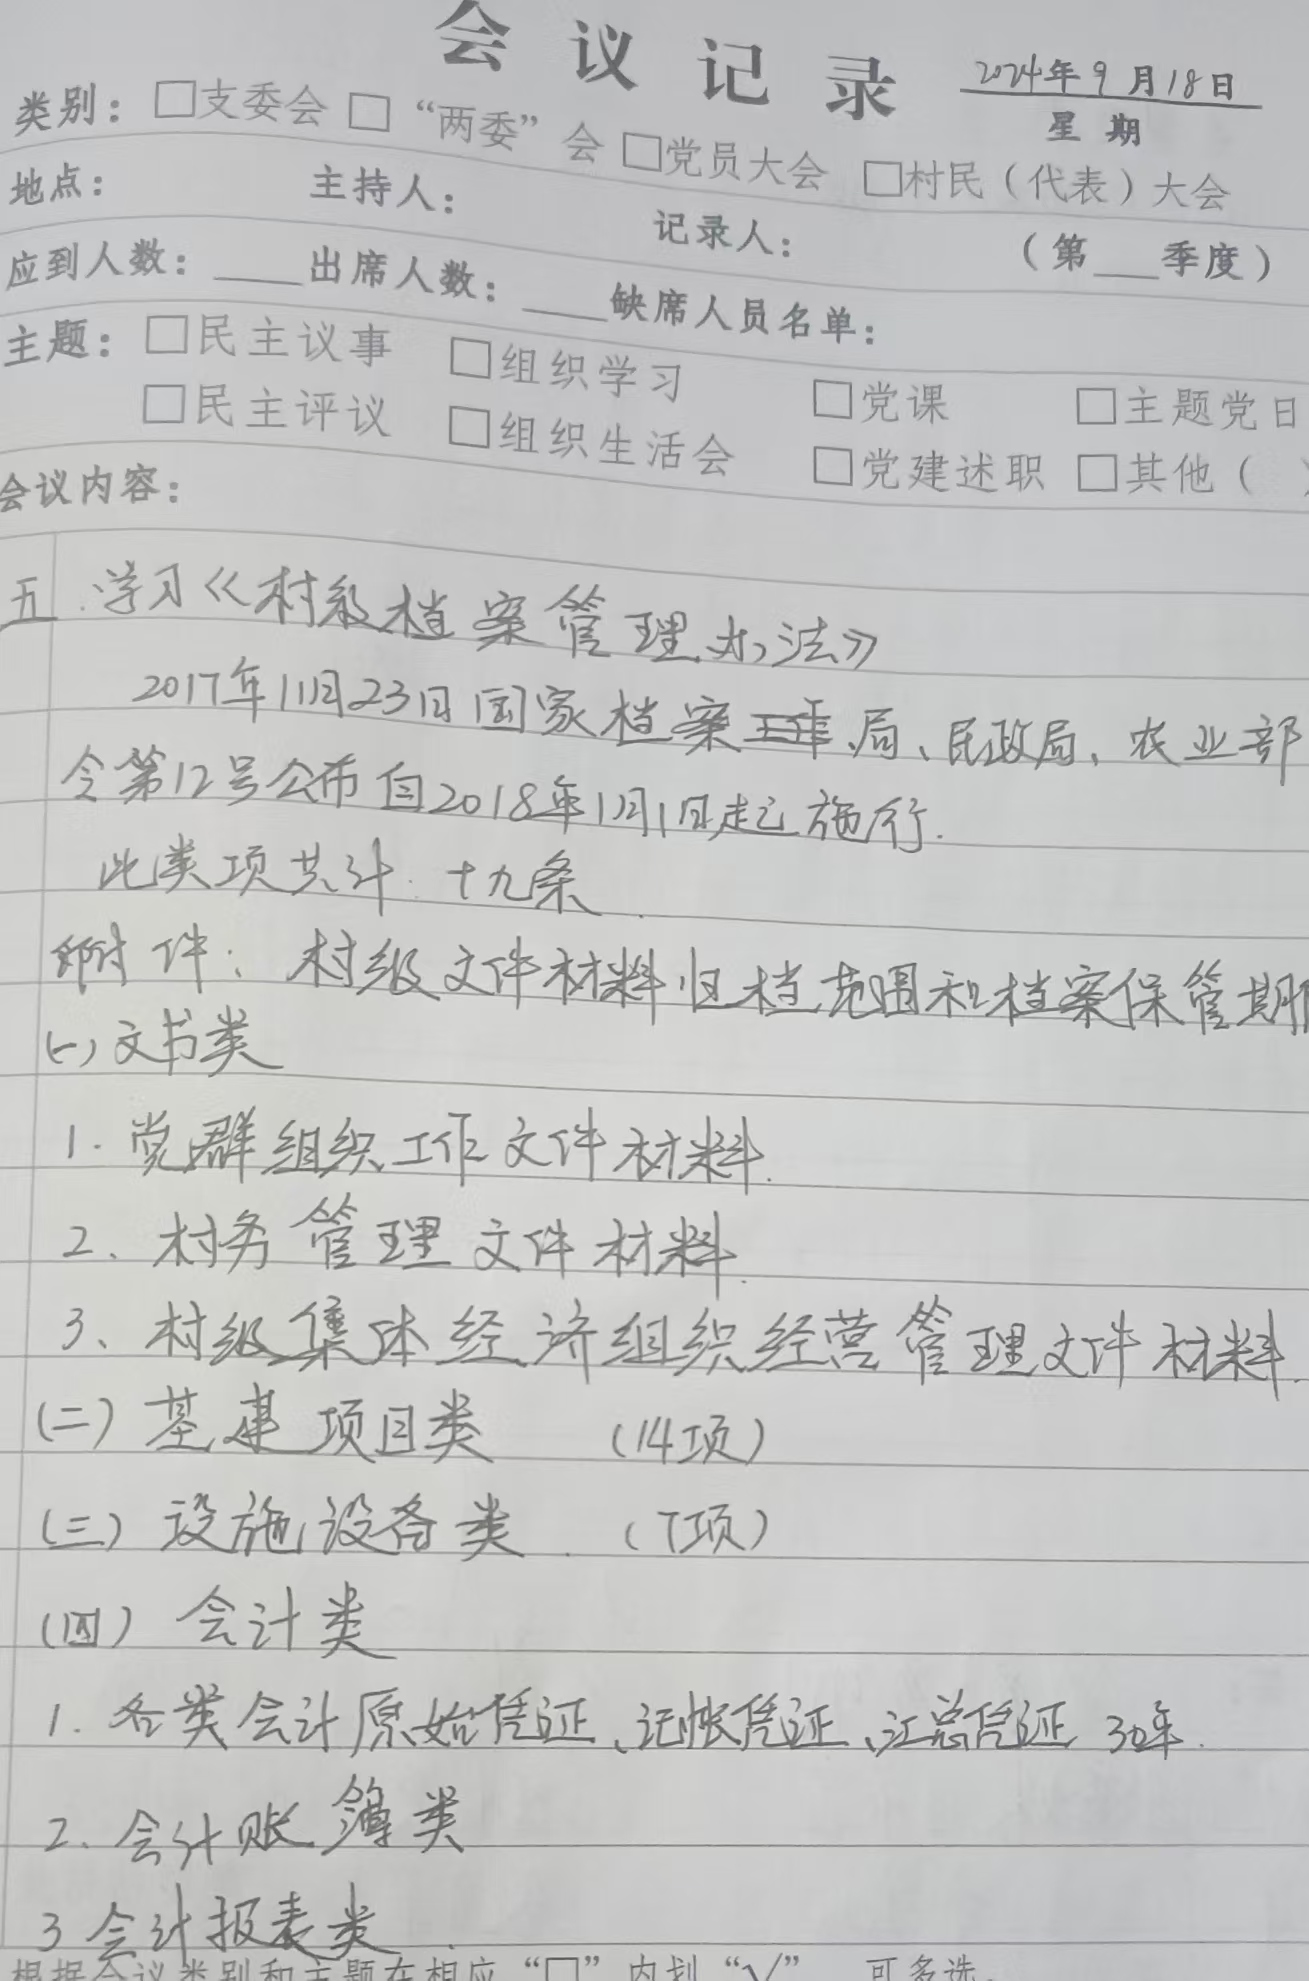 会议记录
2024年9月18日
星期
类别：□支委会 □“两委”会 □党员大会 □村民（代表）大会
地点： 主持人： 记录人： （第___季度）
应到人数：____出席人数：____缺席人员名单：
主题：□民主议事 □组织学习 □党课 □主题党日
□民主评议 □组织生活会 □党建述职 □其他（ ）
会议内容：
五.学习《村级档案管理办法》
2017年11月23日国家档案局、民政局、农业部
令第12号公布自2018年1月1日起施行.
此类项共计：十九条.
附件：村级文件材料归档范围和档案保管期限
(一)文书类
1.党群组织工作文件材料.
2、村务管理文件材料.
3、村级集体经济组织经营管理文件材料.
(二)基建项目类 (14项)
(三)设施设备类. (7项)
(四)会计类
1.各类会计原始凭证、记帐凭证、汇总凭证 30年.
2.会计账簿类
3会计报表类.
根据会议类别和主题在相应“□”内划“√”，可多选。